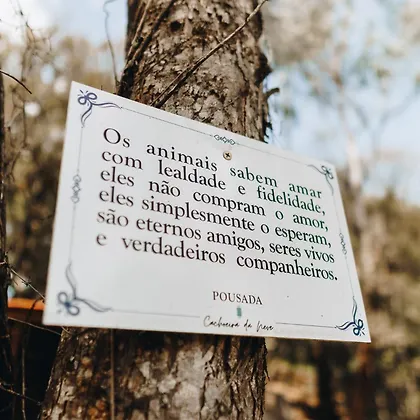 Os animais sabem amar
com lealdade e fidelidade,
eles não compram o amor,
eles simplesmente o esperam,
são eternos amigos, seres vivos
e verdadeiros companheiros.
POUSADA
Cachoeira da Neve